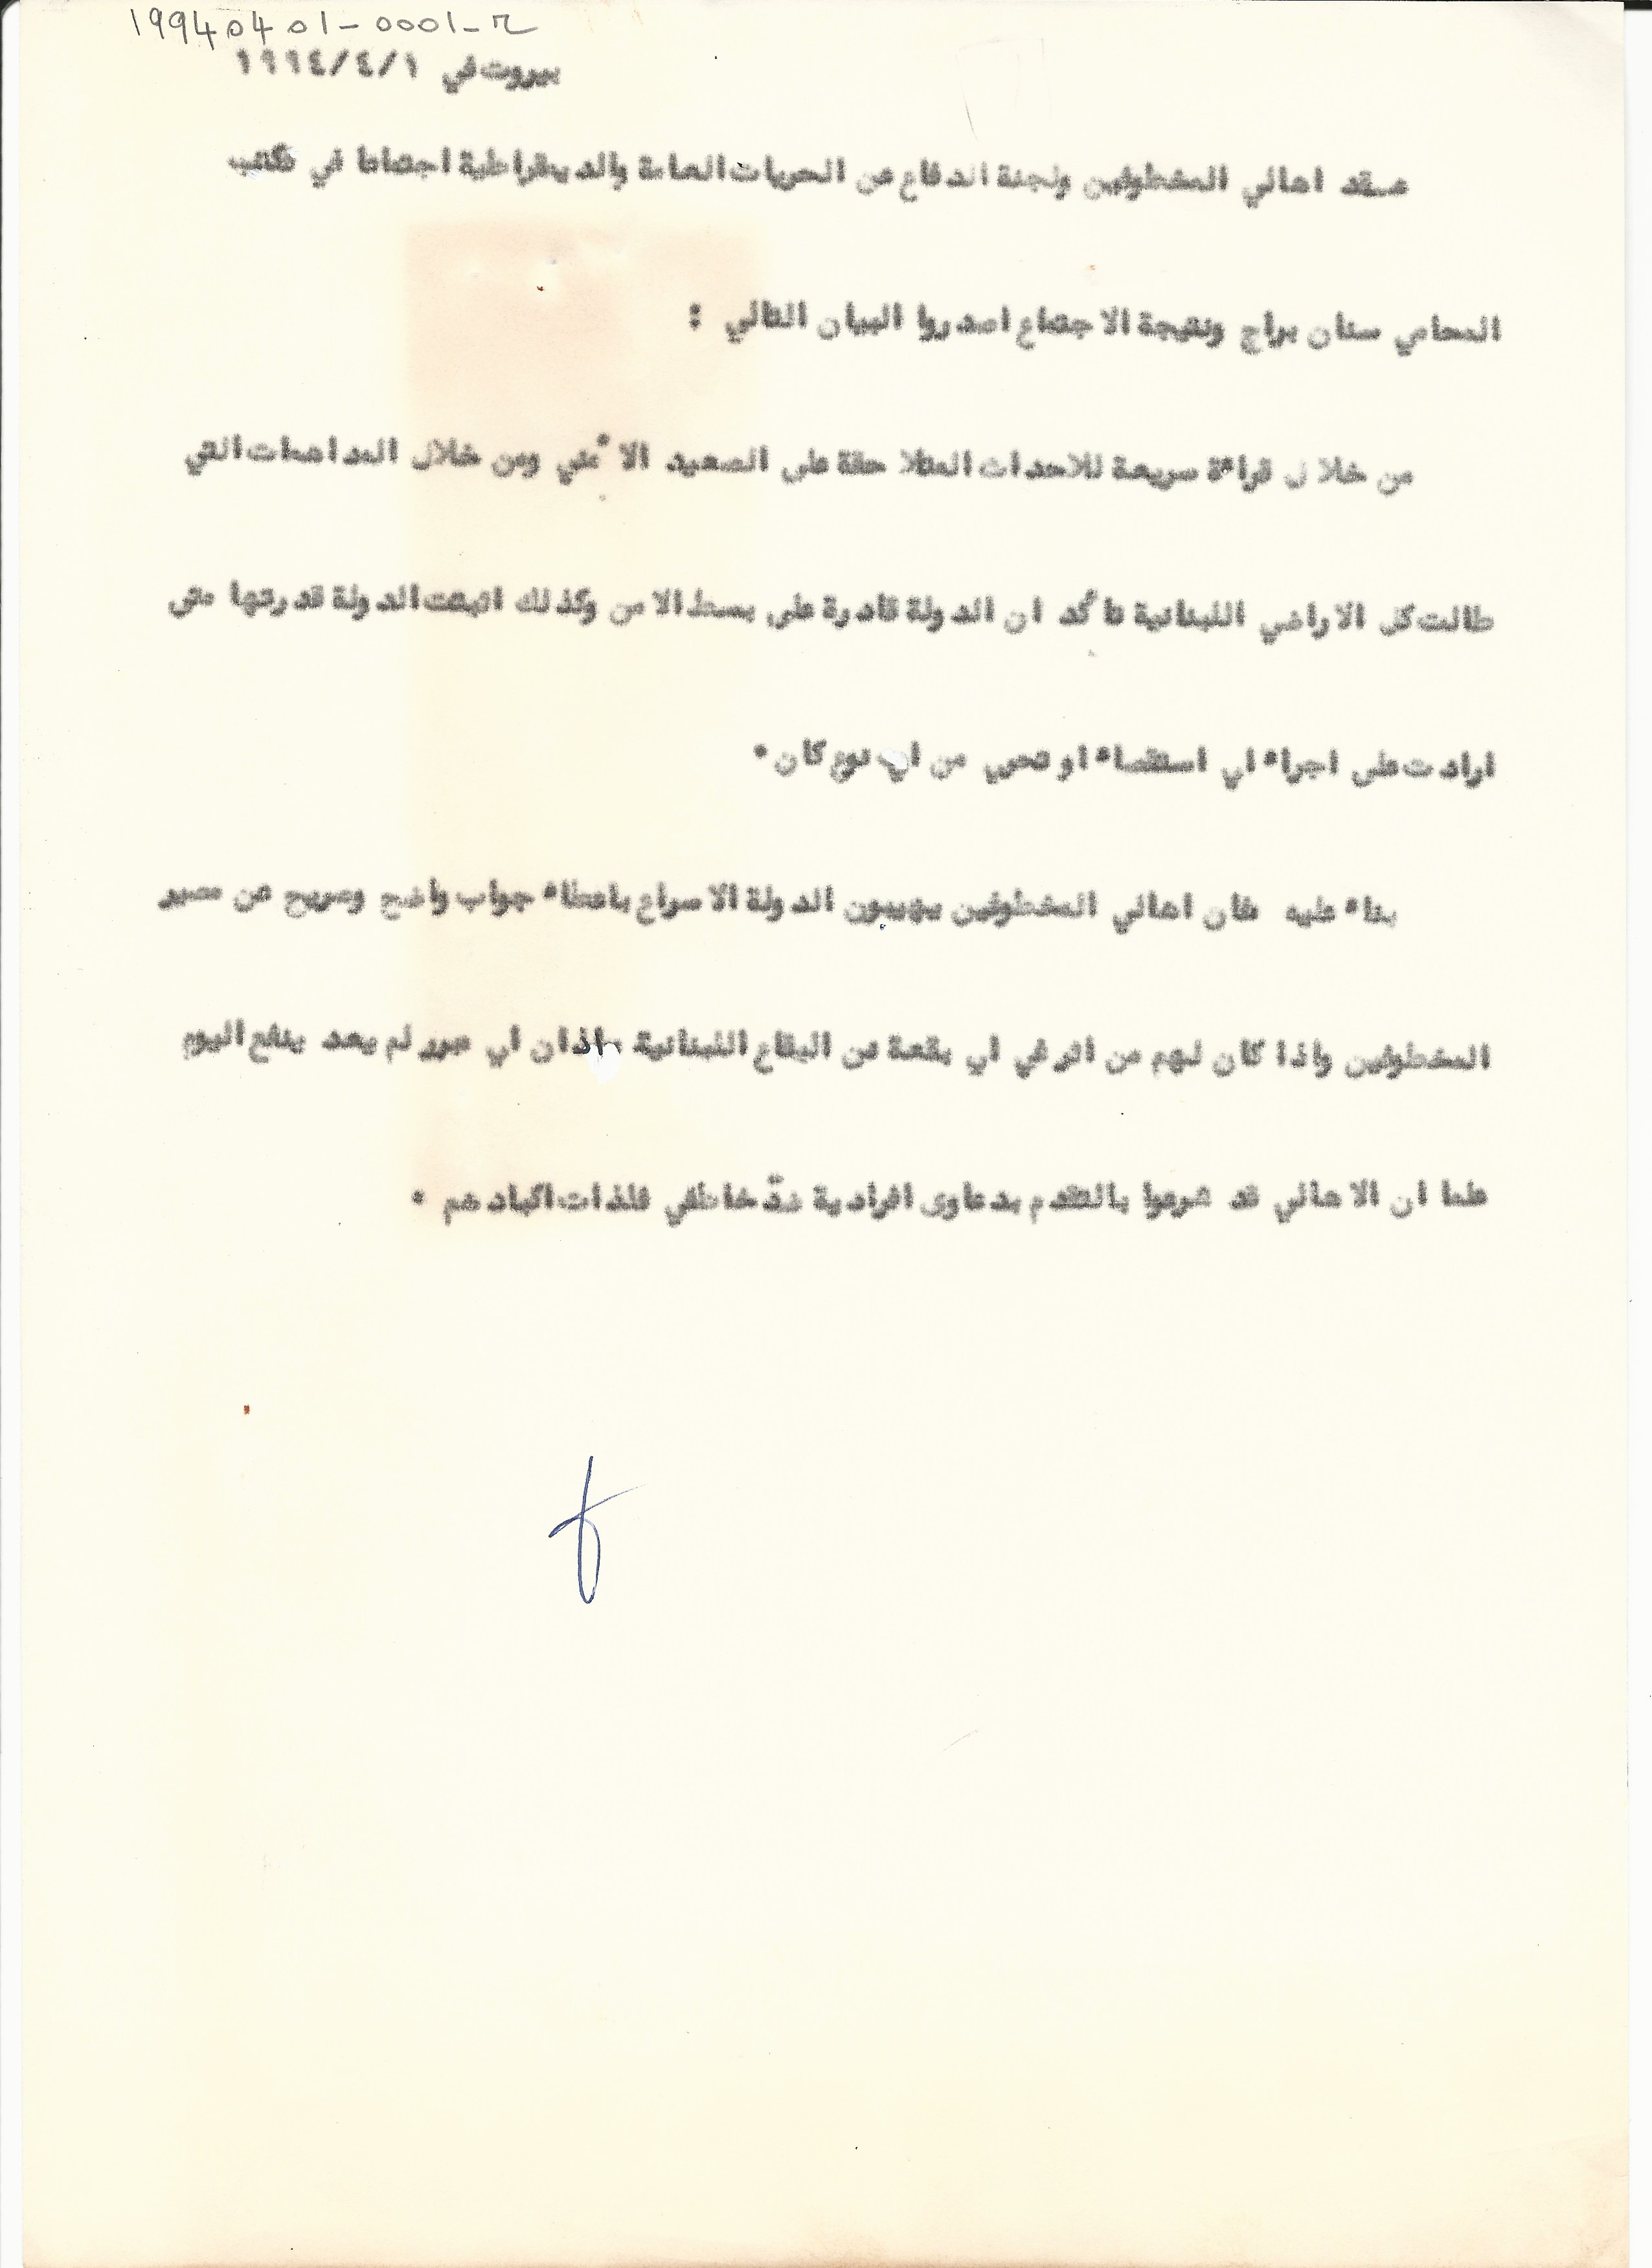 19940401-0001-2
بيروت في ١/٤/١٩٩٤
عـقد اهالي المخطوفين ولجنة الدفاع عن الحريات العامة والديمقراطية اجتماعا في مكتب
المحامي سنان براج ونتيجة الاجتماع اصدروا البيان التالي :
من خلال قراءة سريعة للاحداث المتلاحقة على الصعيد الأمني ومن خلال المداهمات التي
طالت كل الاراضي اللبنانية تأكد ان الدولة قادرة على بسط الامن وكذلك اثبتت الدولة قدرتها متى
ارادت على اجراء اي استقصاء او تحري من اي نوع كان .
بناء عليه فان اهالي المخطوفين يهيبون الدولة الاسراع باعطاء جواب واضح وصريح عن مصير
المخطوفين واذا كان لهم من اثر في اي بقعة من البقاع اللبنانية ، اذ ان اي مبرر لم يعد ينفع اليوم
علما ان الاهالي قد شرعوا بالتقدم بدعاوى افرادية ضدّ خاطفي فلذات اكبادهم .